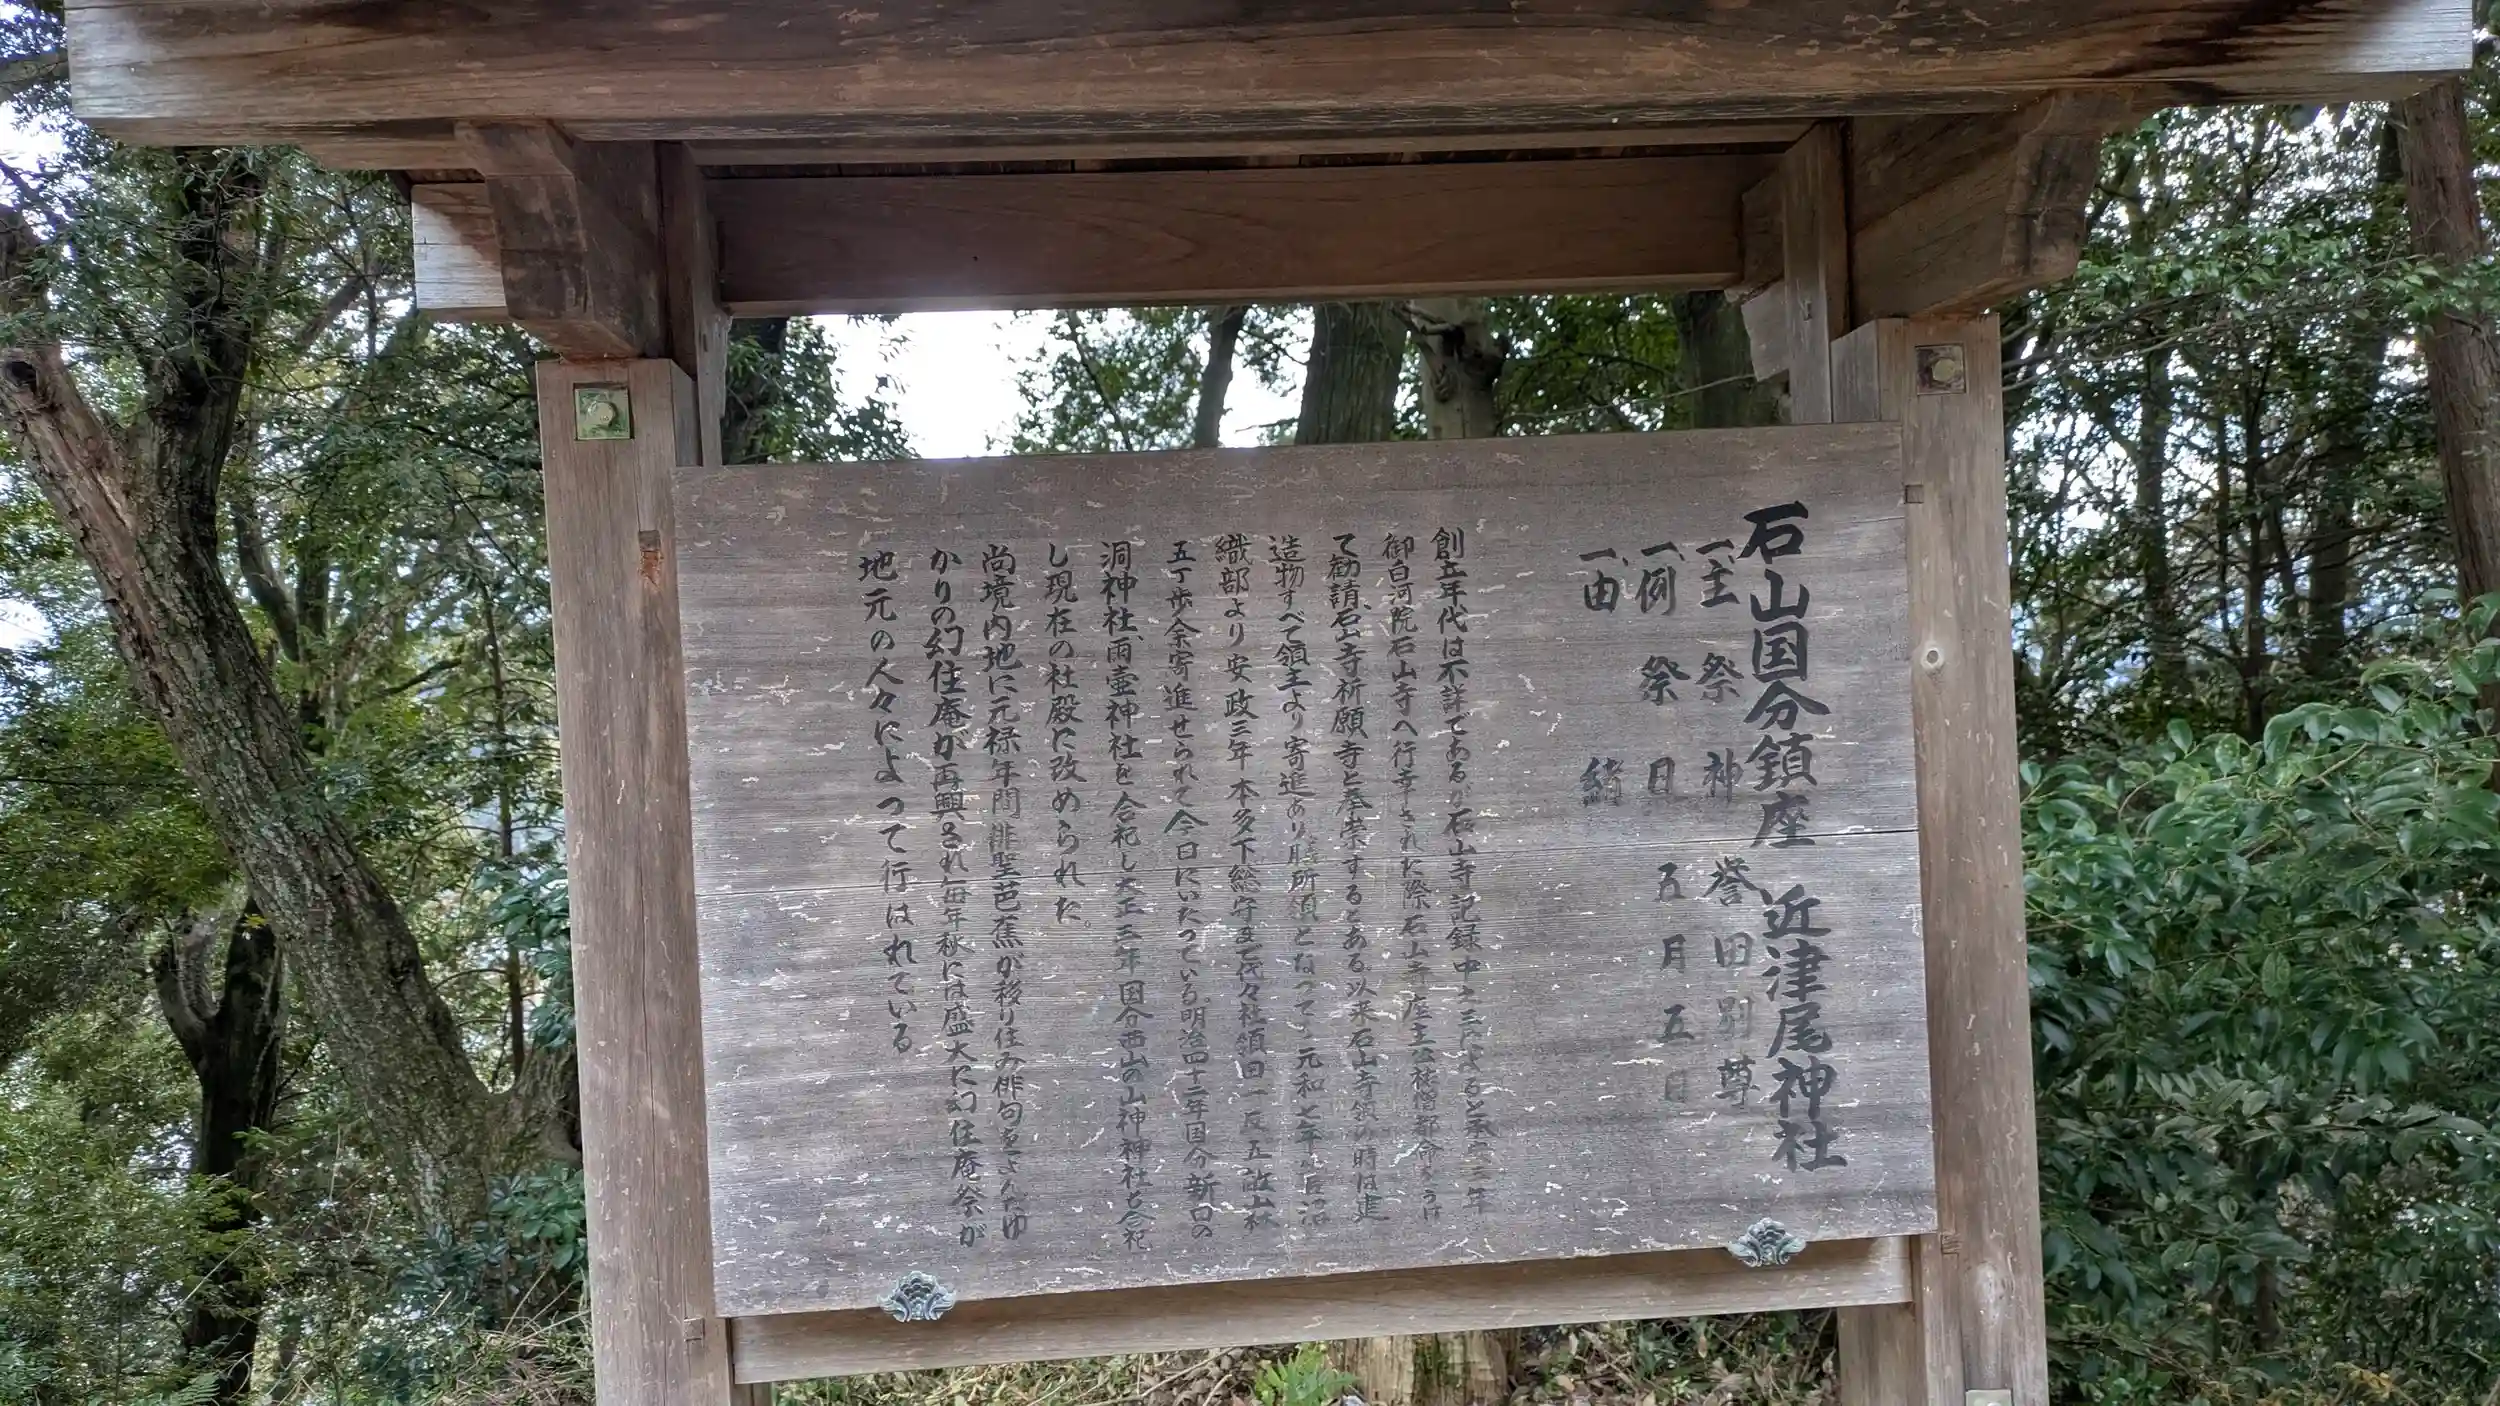 石山国分鎮座 近津尾神社
一、主祭神 誉田別尊
一、例祭日 五月五日
一、由緒
創立年代は不詳であるが石山寺記録中之三によると 三年
御白河院石山寺へ行幸された際石山寺座主公 僧都命をうけ
て勧請、石山寺祈願寺と奉崇するとある。以来石山寺領の時は進
造物すべて領主より寄進あり膳所領となって、元和七年菅沼
織部より安政三年本多下総守まで代々社領田一反五畝山林
五丁歩余寄進せられて今日にいたっている。明治四十二年国分新口の
洞神社、雨壷神社を合祀し大正三年国分西山の山神神社も合祀
し現在の社殿に改められた。
尚境内地に元禄年間俳聖芭蕉が移り住み俳句をよんだゆ
かりの幻住庵が再興され毎年秋には盛大に幻住庵祭が
地元の人々によって行はれている